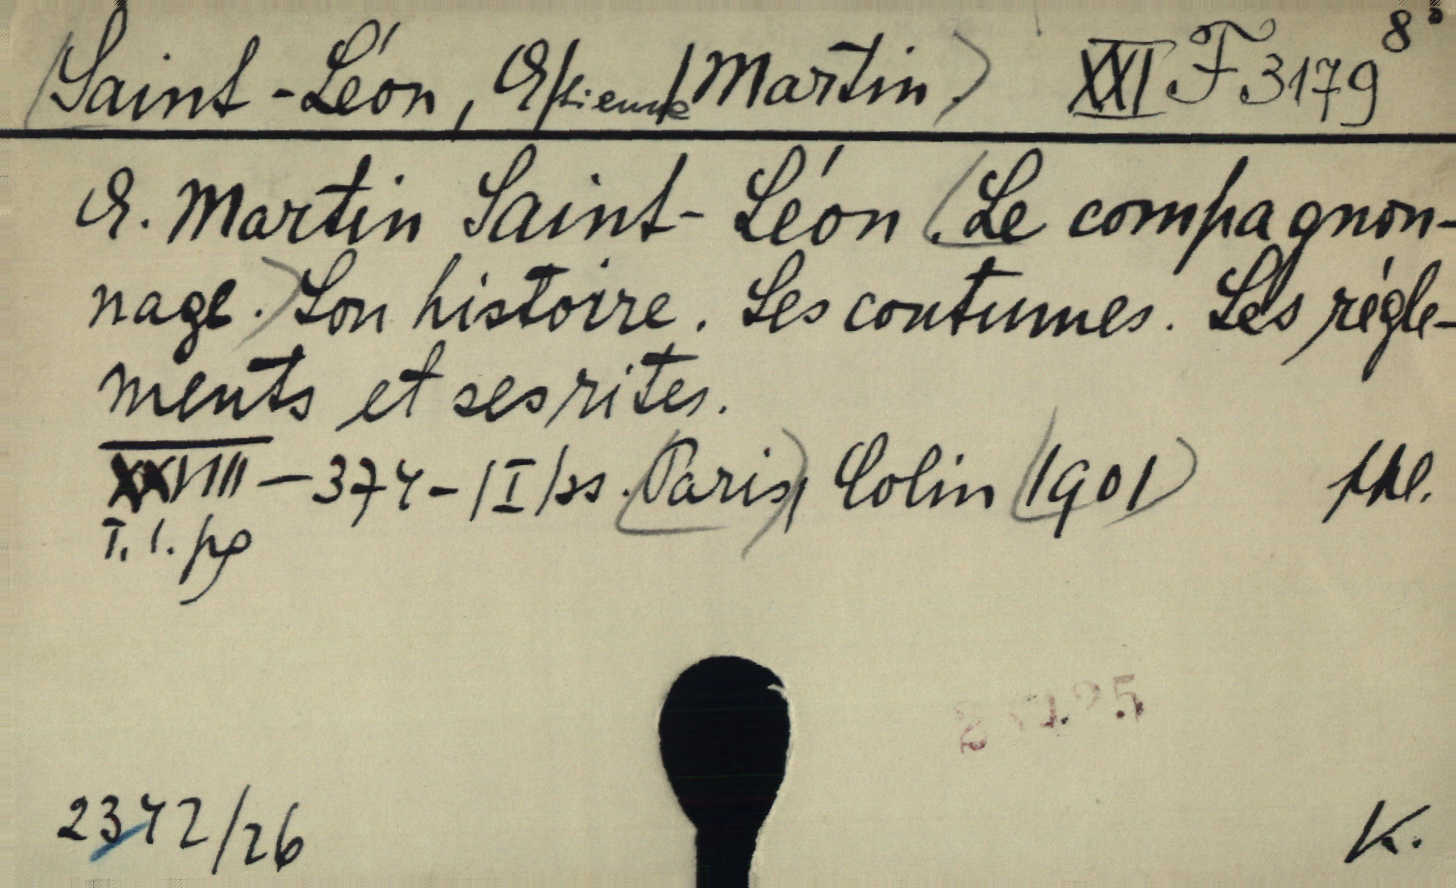 Saint-Léon, E/tienne/ Martin. XXI F 3179 8°
E. Martin Saint-Léon. Le compagnon-
nage. Son histoire. Ses coutumes. Les régle-
ments et ses rites.
XXVIII-374-/I/ss. Paris, Colin 1901
T. l. pg
2342/26 K.